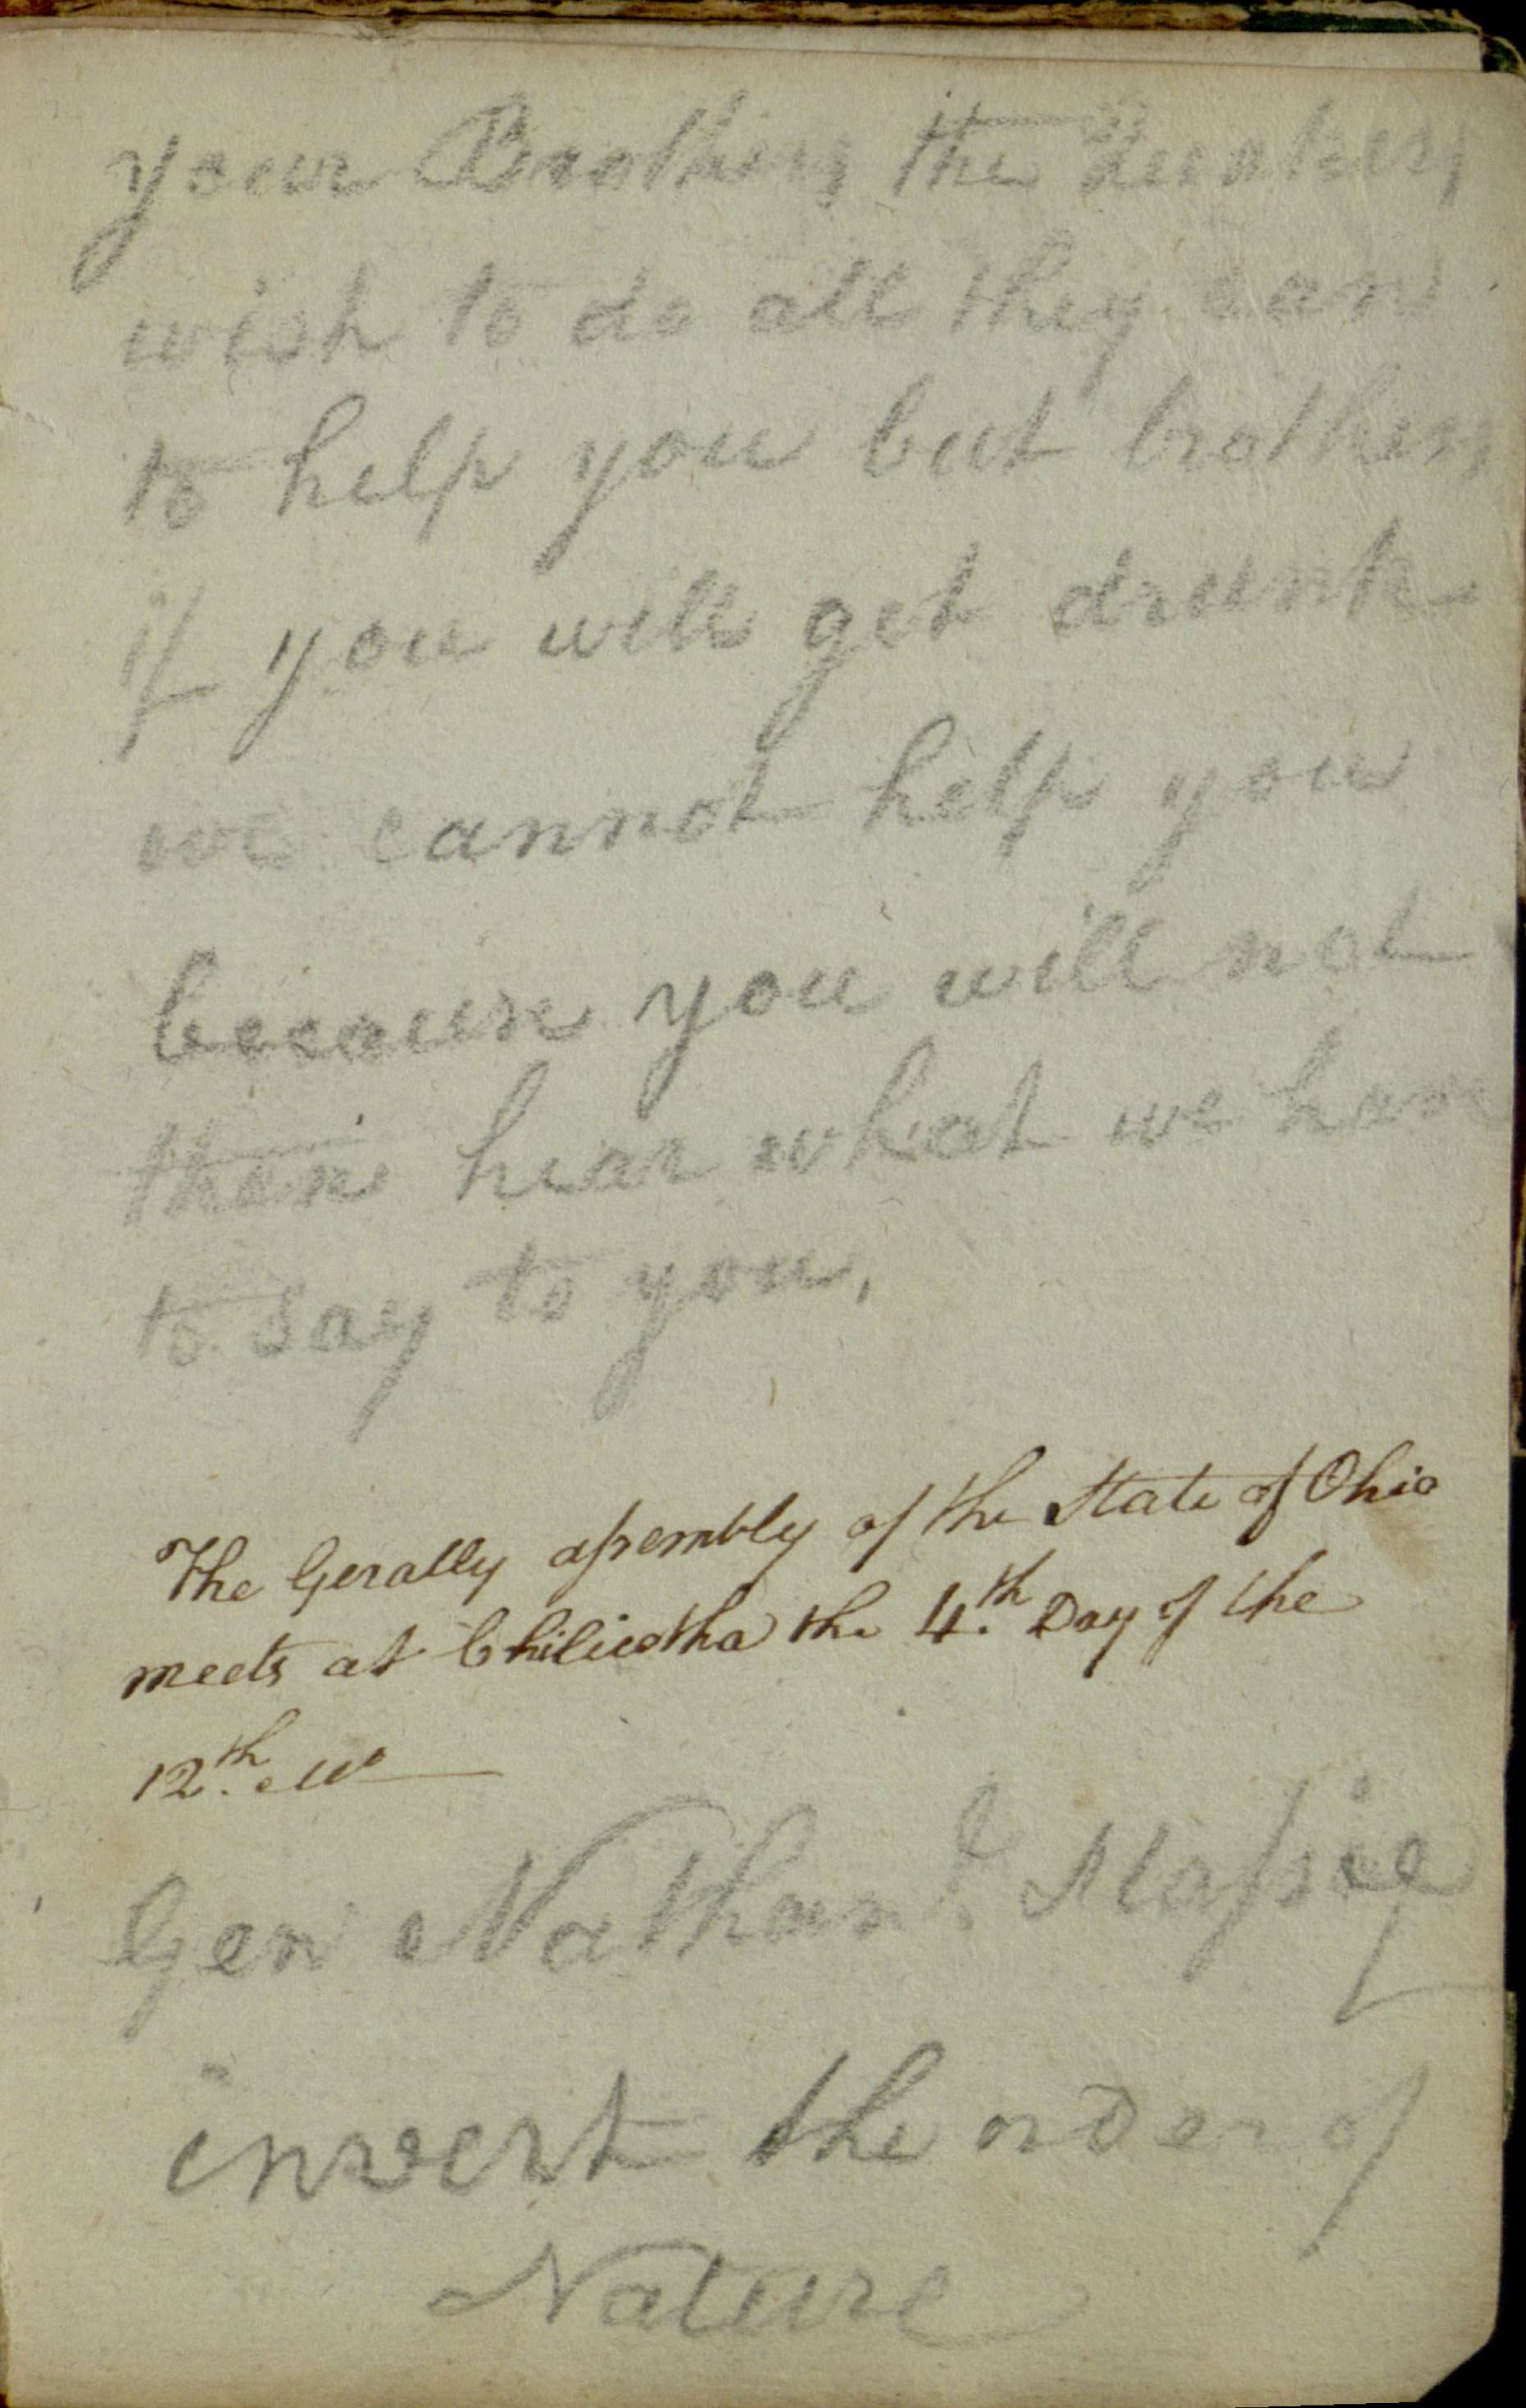 your Brothers the Quakers
wish to do all they can
to help you but brothers
if you will get drunk
we cannot help you
because you will not
then hear what we have
to say to you,
The Gerally assembly of the State of Ohio
meets at Chilicotha the 4.th Day of the
12.th M
Gen Nathan.l Massie
invert the order of
Nature